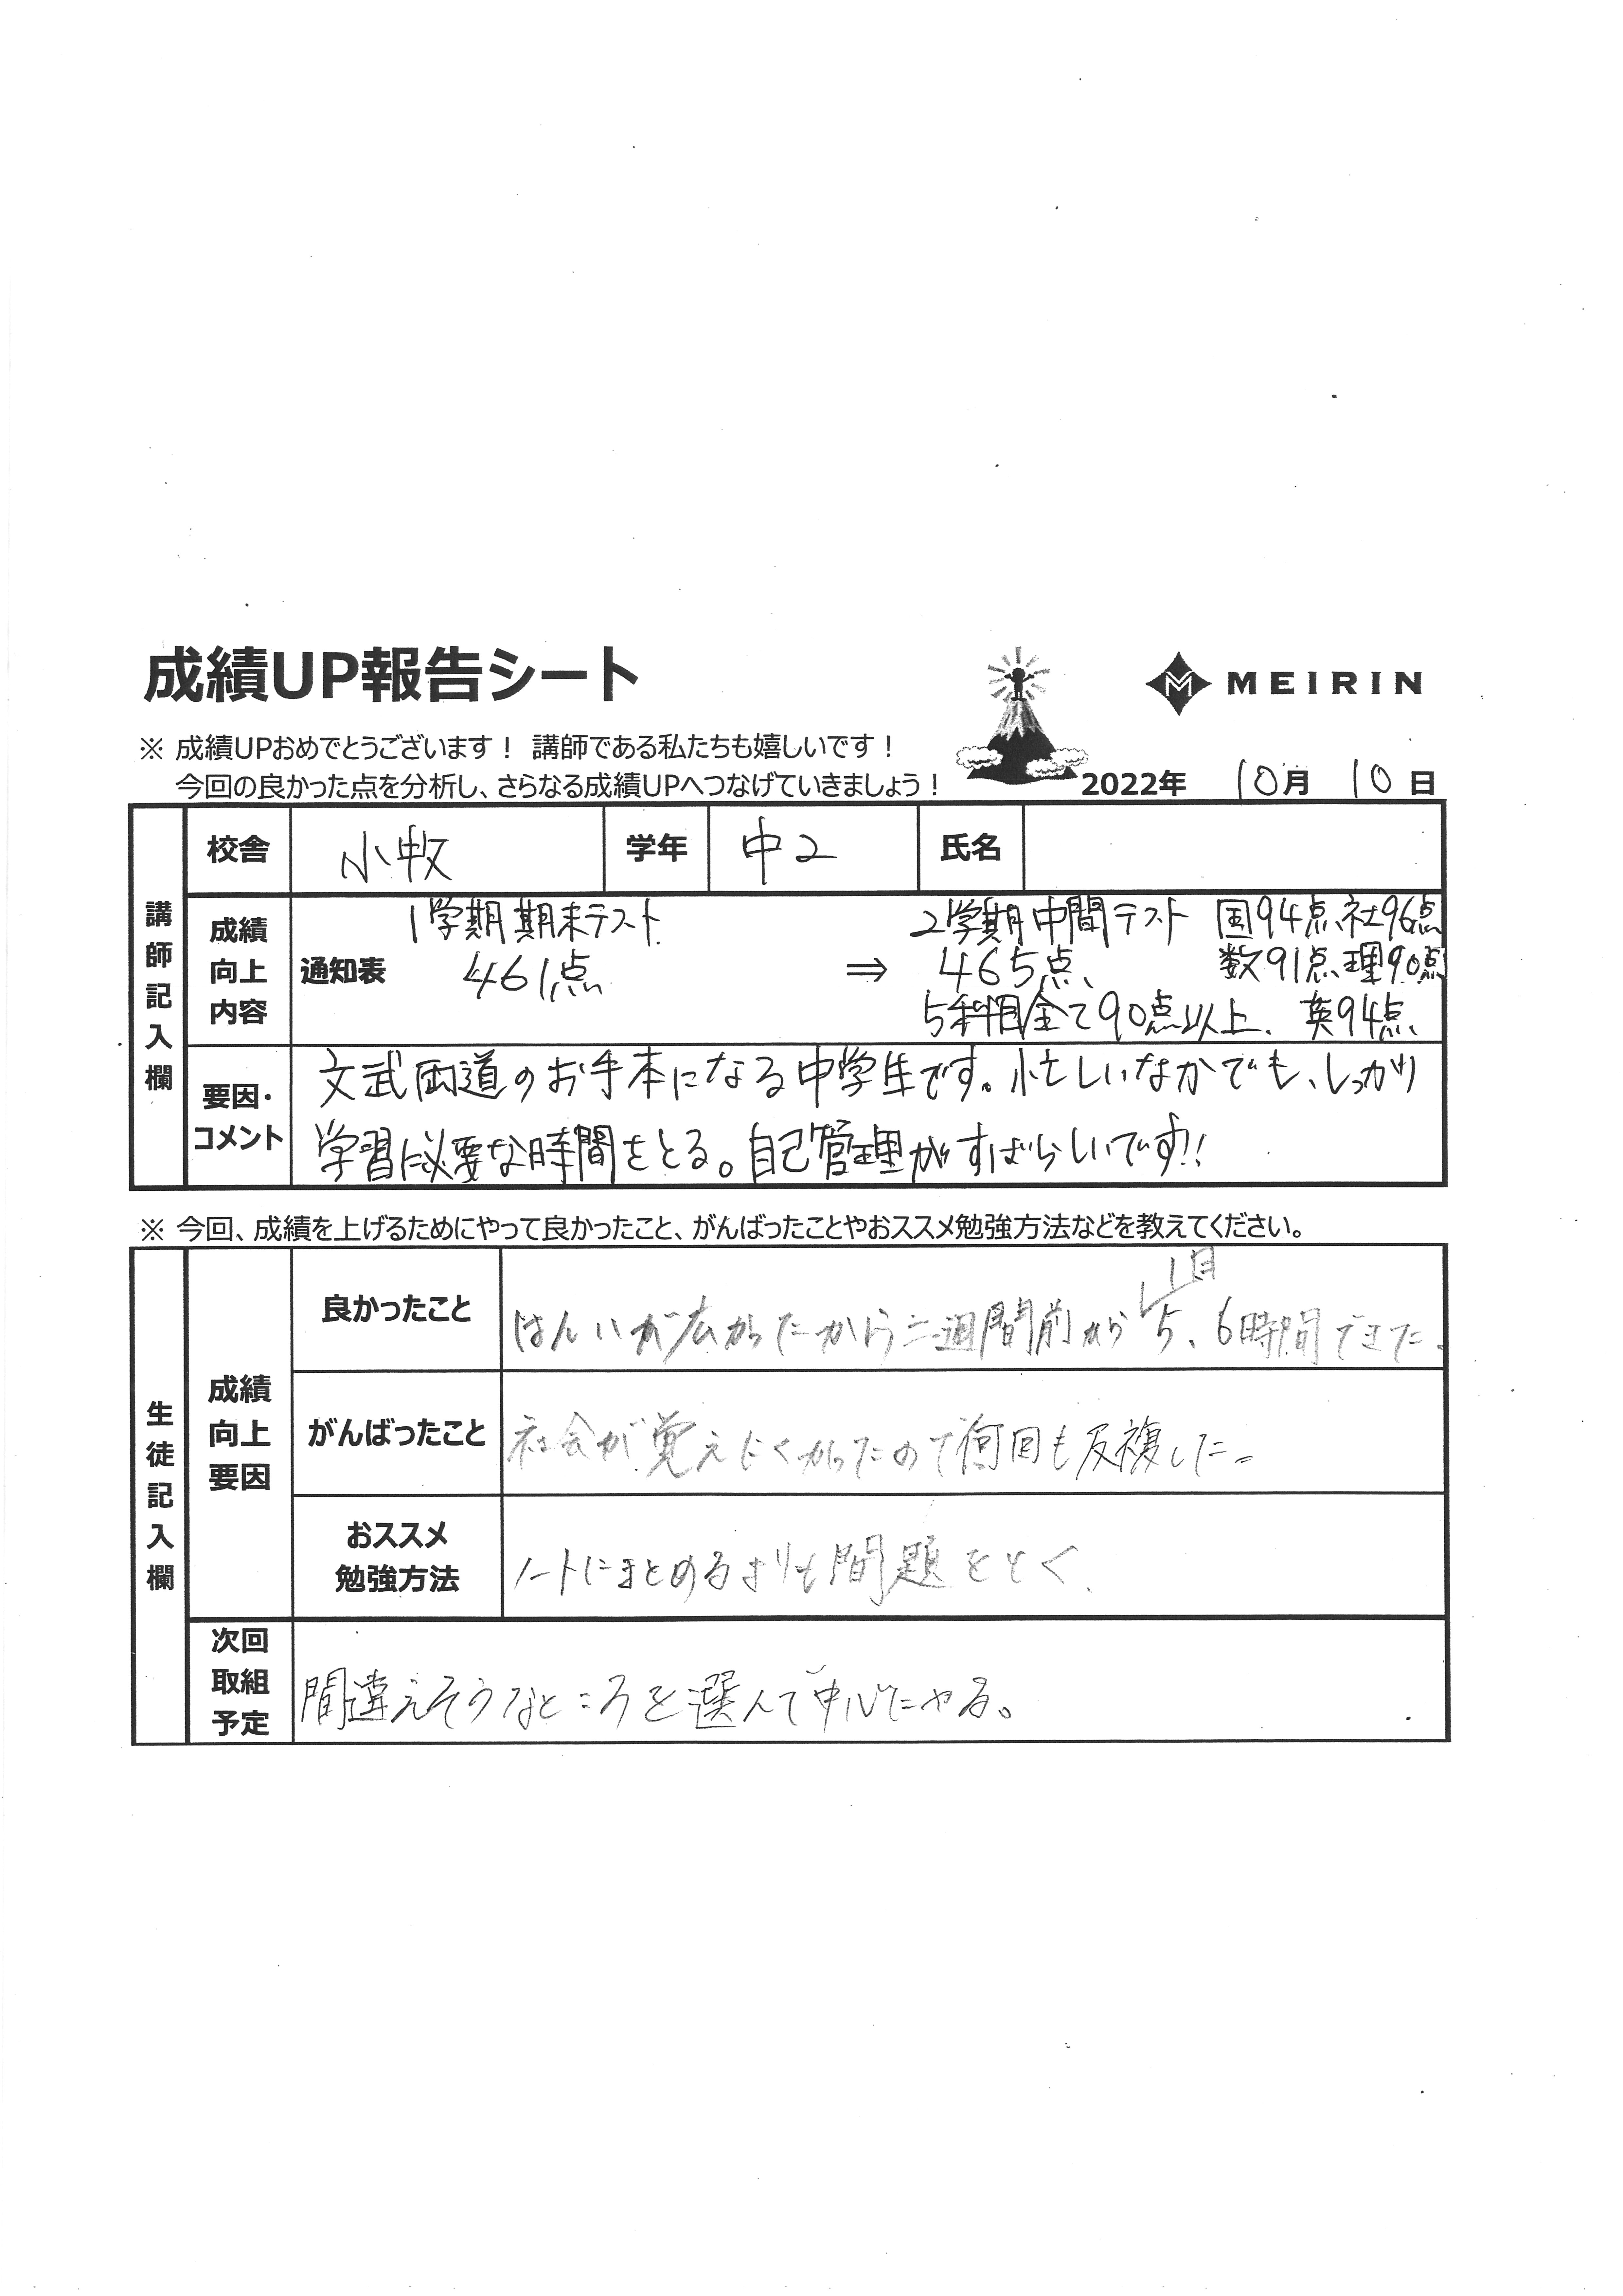 成績UP報告シート
MEIRIN
※ 成績UPおめでとうございます! 講師である私たちも嬉しいです!
今回の良かった点を分析し、さらなる成績UPへつなげていきましょう!
2022年 10月 10日
講師記入欄
校舎 小牧 学年 中2 氏名
成績向上内容
通知表
1学期期末テスト
461点
⇒
2学期中間テスト 国94点、社96点
465点、 数91点、理90点
5科目全て90点以上、 英94点、
要因・コメント
文武両道のお手本になる中学生です。忙しいなかでも、しっかり
学習に必要な時間をとる。自己管理がすばらしいです!!
※ 今回、成績を上げるためにやって良かったこと、がんばったことやおススメ勉強方法などを教えてください。
生徒記入欄
成績向上要因
良かったこと
はんいが広かったから二週間前から1日5、6時間できた。
がんばったこと
社会が覚えにくかったので何回も反複した。
おススメ勉強方法
ノートにまとめるよりも問題をとく、
次回取組予定
間違えそうなところを選んで中心にやる。